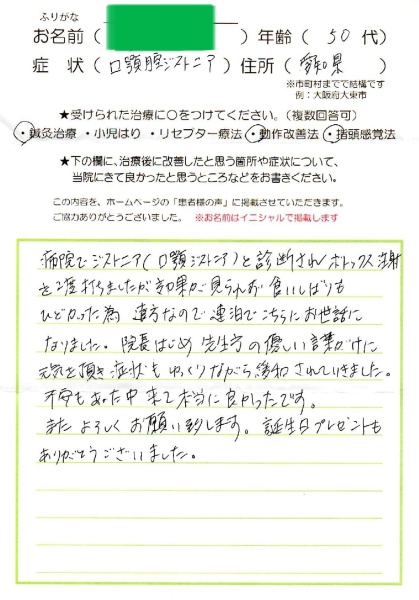 ふりがな
お名前( )年齢(50代)
症 状(口顎腔ジストニア)住所(愛知県)
※市町村までで結構です
例：大阪府大東市
★受けられた治療に○をつけてください。(複数回答可)
・鍼灸治療 ・小児はり ・リセプター療法 ・動作改善法 ・指頭感覚法
★下の欄に、治療後に改善したと思う箇所や症状について、
当院にきて良かったと思うところなどをお書きください。
この内容を、ホームページの「患者様の声」に掲載させていただきます。
ご協力ありがとうございました。 ※お名前はイニシャルで掲載します
病院でジストニア(口顎ジストニア)と診断されボトックス注射
を2度打ちましたが効果が見られず 食いしばりも
ひどかった為 遠方なので連泊でこちらにお世話に
なりました。院長はじめ 先生方の優しい言葉がけに
元気を頂き症状も ゆっくりながら緩和されていきました。
不安もあった中 来て本当に良かったです。
また よろしく お願い致します。誕生日プレゼントも
ありがとうございました。